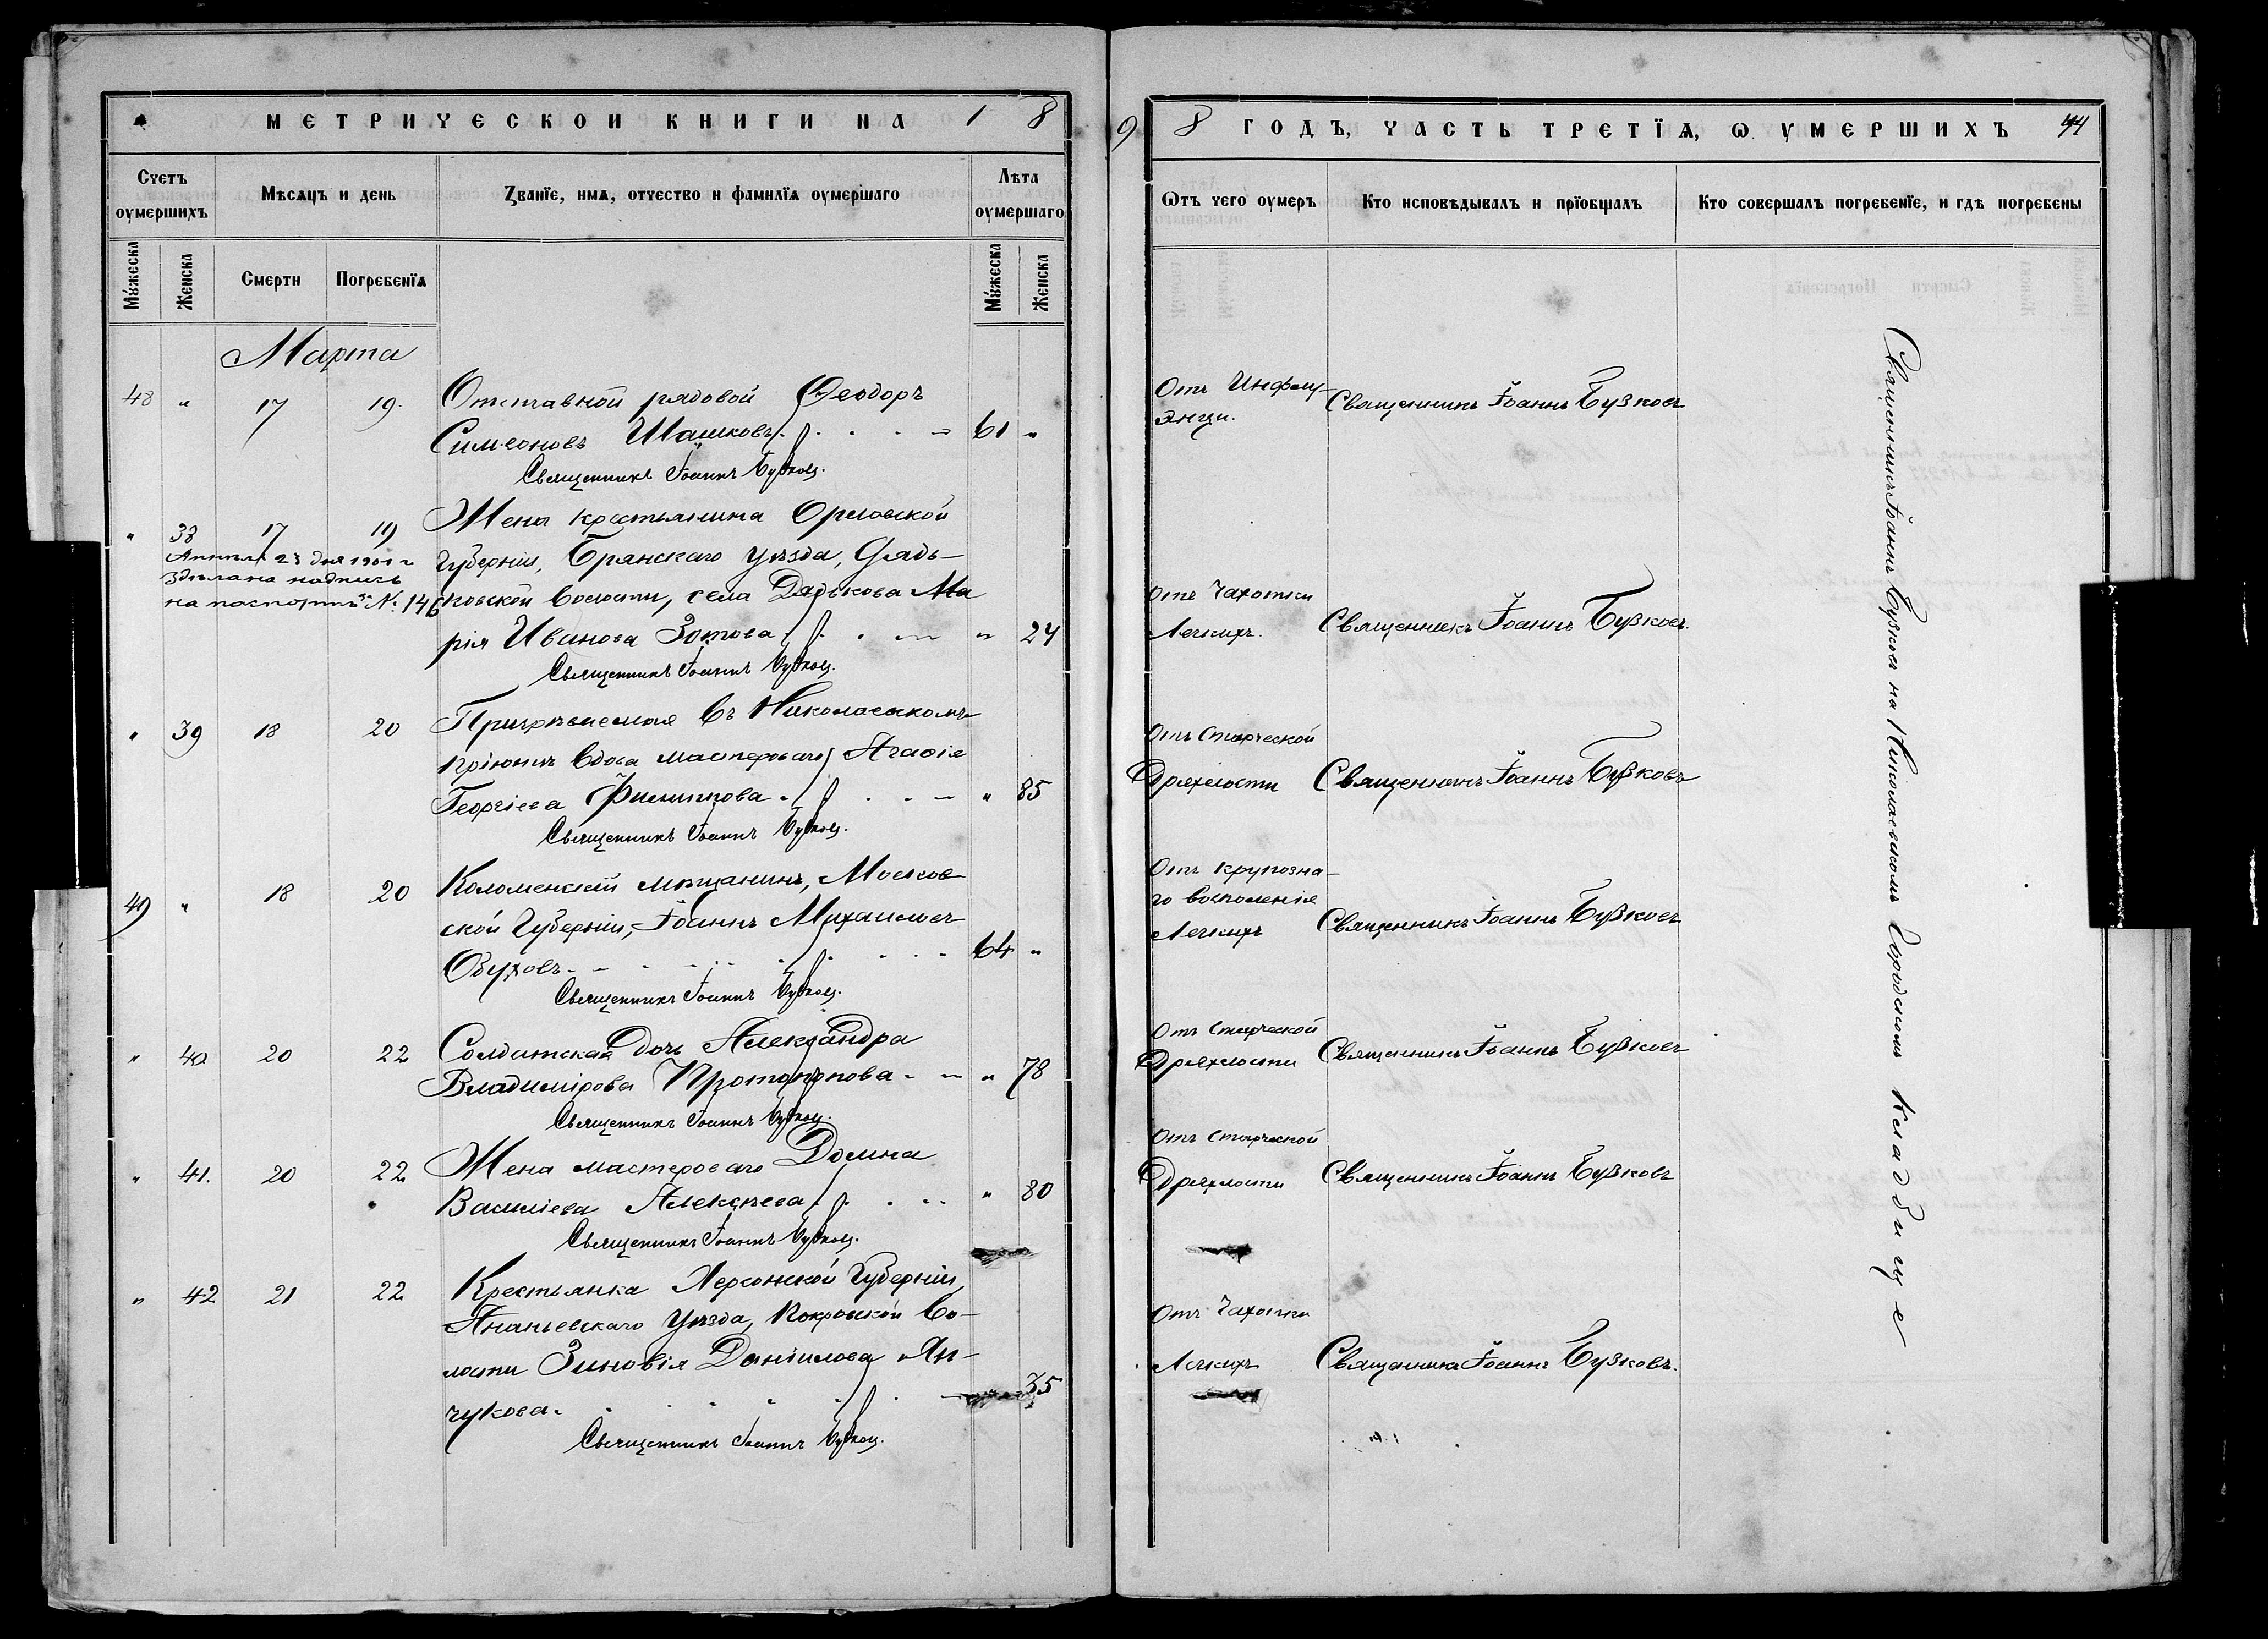 МЕТРИЧЕСКОЙ КНИГИ НА 1 8
Счетъ оумершихъ
Мѣсяцъ и день
Званїе, имѧ, отчество и фамилїѧ оумершаго
Лѣта оумершаго
Мꙋжеска
Женска
Смерти
Погребенїѧ
Мꙋжеска
Женска
Марта
48 " 17 19. Отставной рядовой Ѳеодоръ
Симеоновъ Шашковъ. 61 "
Священникъ Іоаннъ Бузковъ.
" 38 17 19 Жена крестьянина Орловской
Апрѣля 23 дня 1901 г
Губерніи, Брянскаго уѣзда, Дядь-
здѣлана надпись
на паспортѣ № 146
ковской волости, села Дядькова Ма
рія Иванова Зотова " 24
Священникъ Іоаннъ Бузковъ.
" 39 18 20 Призрѣваемая въ Николаевскомъ
пріютѣ вдова мастероваго Агафія
Георгіева Филиппова " 85
Священникъ Іоаннъ Бузковъ.
49 " 18 20 Коломенскій мѣщанинъ, Москов
ской Губерніи, Іоаннъ Михаиловъ
Обуховъ 64 "
Священникъ Іоаннъ Бузковъ.
" 40 20 22 Солдатская дочь Александра
Владимірова Протопопова " 78
Священникъ Іоаннъ Бузковъ.
" 41. 20 22 Жена мастероваго Домна
Василіева Алексѣева " 80
Священникъ Іоаннъ Бузковъ.
" 42 21 22 Крестьянка Херсонской Губерніи,
Ананьевскаго уѣзда, Покровской во-
лости Зиновія Даніилова Ян-
35
чукова
Священникъ Іоаннъ Бузковъ.
9 8 ГОДЪ, ЧАСТЬ ТРЕТЇѦ, Ѡ УМЕРШИХЪ 44
Ѿтъ чего оумеръ
Кто исповѣдывалъ и прїобщалъ
Кто совершалъ погребенїе, и гдѣ погребены
Отъ Инфлу-
энци.
Священникъ Іоаннъ Бузковъ
Отъ Чахотки
Легкихъ.
Священникъ Іоаннъ Бузковъ.
Отъ Старческой
Дряхлости
Священникъ Іоаннъ Бузковъ
Отъ крупозна-
го восполенія
Легкихъ
Священникъ Іоаннъ Бузковъ
Отъ Старческой
Дряхлости
Священникъ Іоаннъ Бузковъ
Отъ Старческой
Дряхлости
Священникъ Іоаннъ Бузковъ
Отъ Чахотки
Легкихъ
Священникъ Іоаннъ Бузковъ.
Священникъ Іоаннъ Бузковъ на Николаевскомъ Городскомъ Кладбище